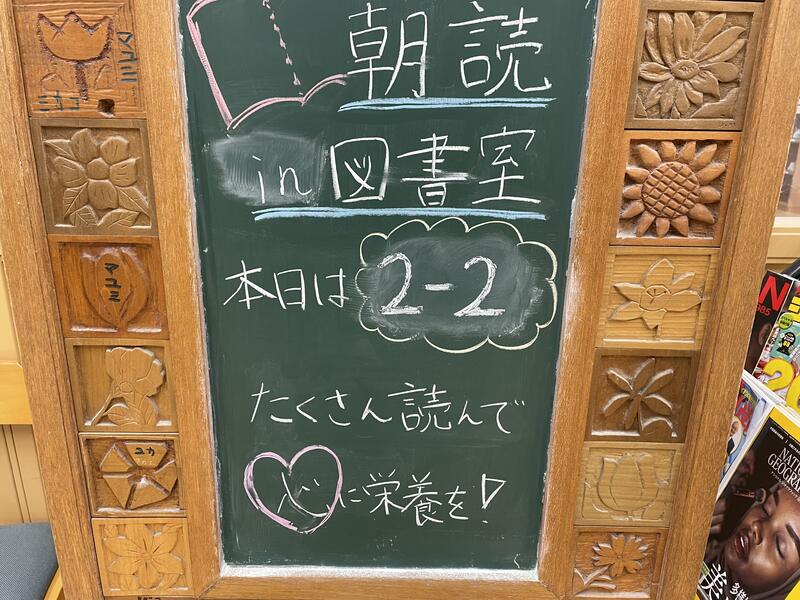 朝読
in 図書室
本日は 2-2
たくさん読んで
心に栄養を!
マユミ
マユミ
ユカ